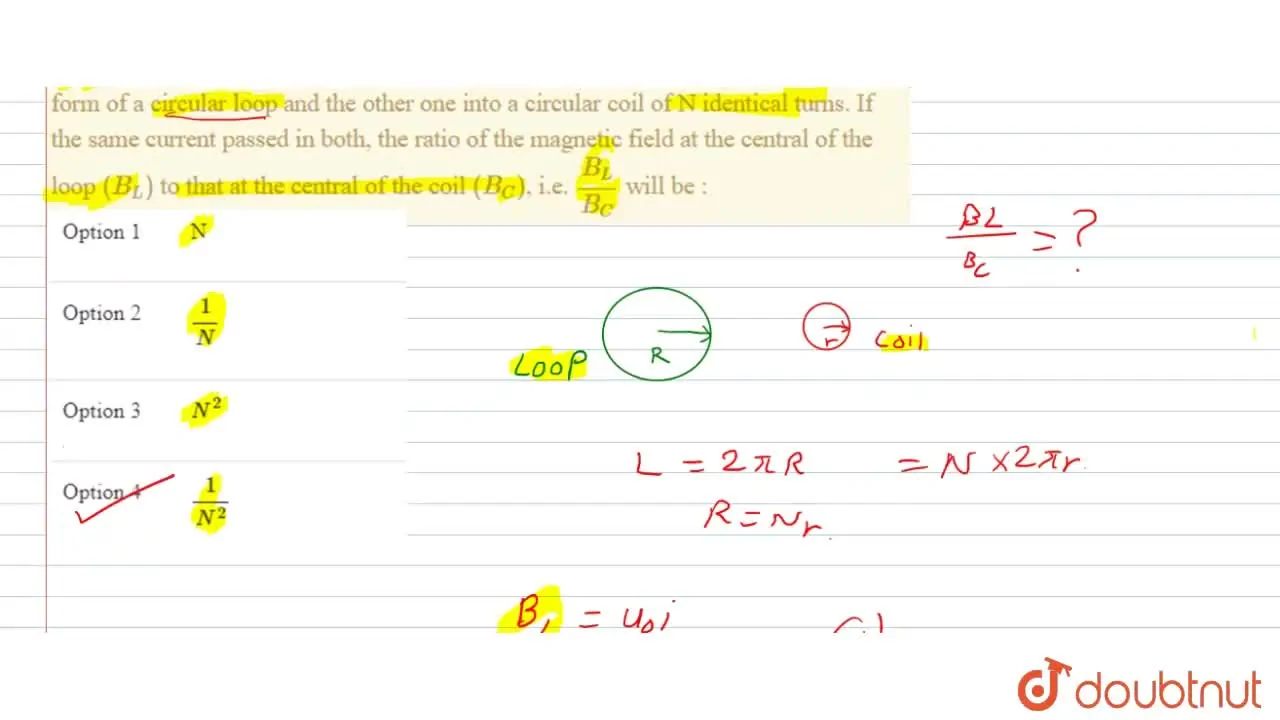 form of a circular loop and the other one into a circular coil of N identical turns. If
the same current passed in both, the ratio of the magnetic field at the central of the
loop (B_L) to that at the central of the coil (B_C), i.e. B_L/B_C will be :
Option 1 N
Option 2 1/N
Option 3 N²
Option 4 1/N²
BL/BC = ?
R
LOOP
r
coil
L = 2πR = N×2πr
R = Nr
B_L = u₀i
doubtnut